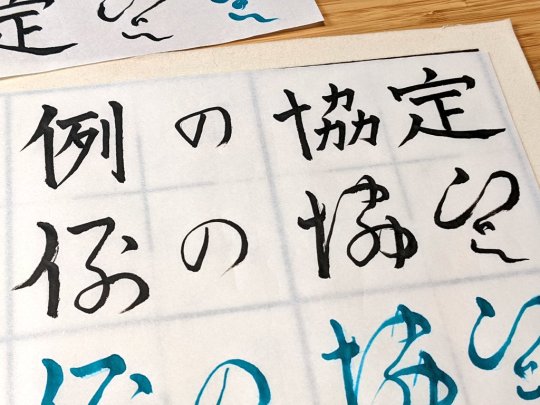 定
例の協定
例の協定
例の協定